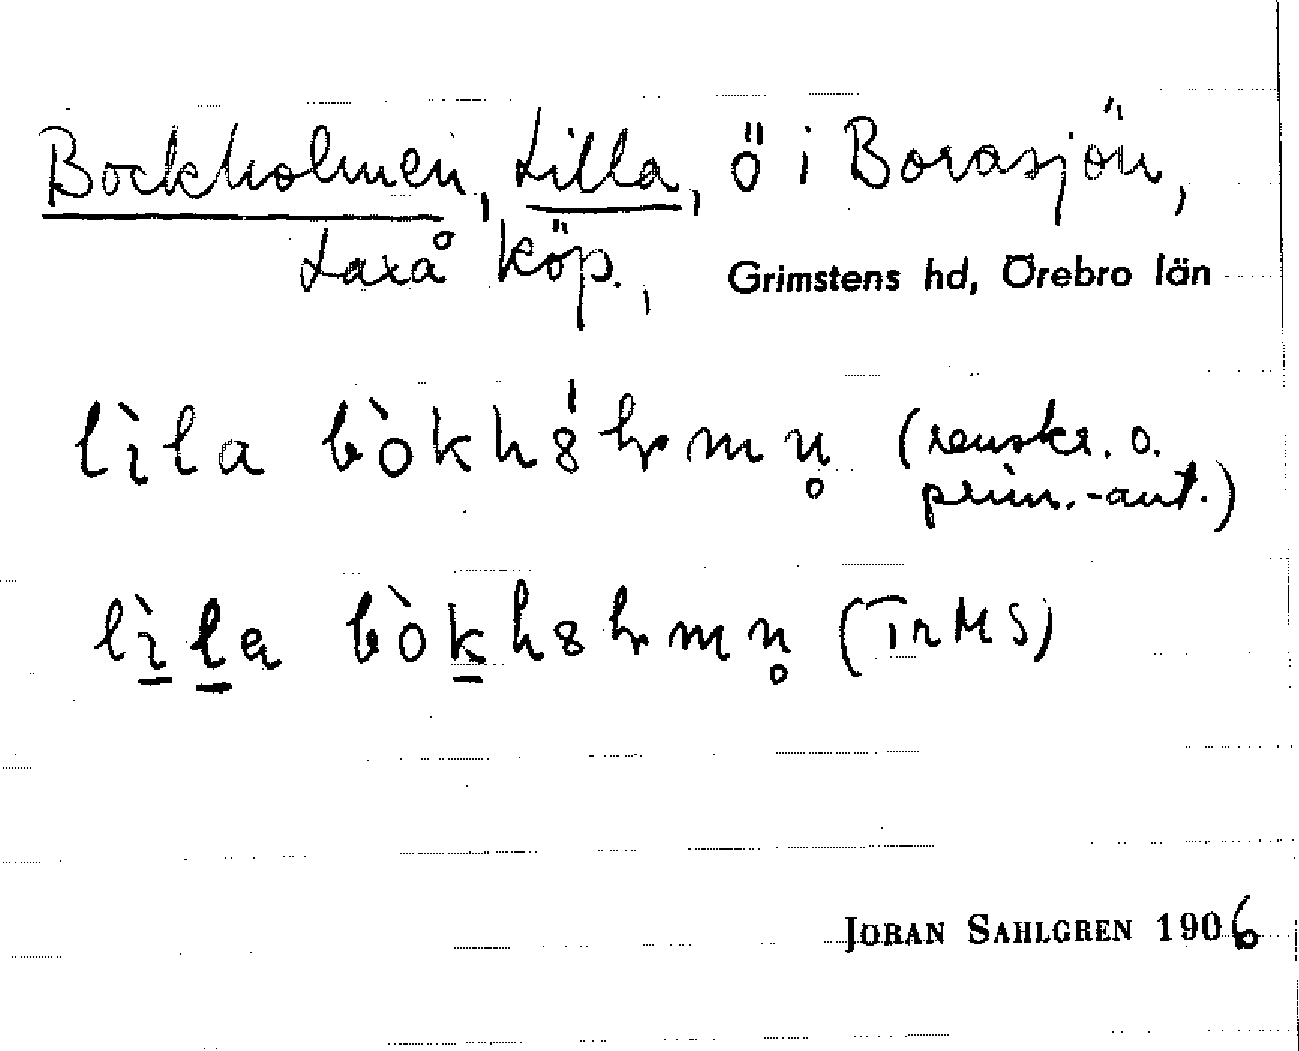 Bockholmen, Lilla, ö i Borasjön,
Laxå köp., Grimstens hd, Örebro län
lìla bòkh8́lmn̥ (renskr. o.
prim.-ant.)
lìla bòkh8lmn̥ (TrMS)
JÖRAN SAHLGREN 1906